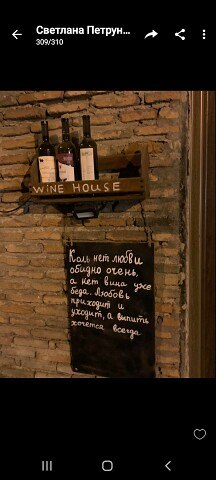 Светлана Петрун...
309/310
WINE HOUSE
Коль нет любви
обидно очень,
а нет вина уже
беда. Любовь
приходит и
уходит, а выпить
хочется всегда